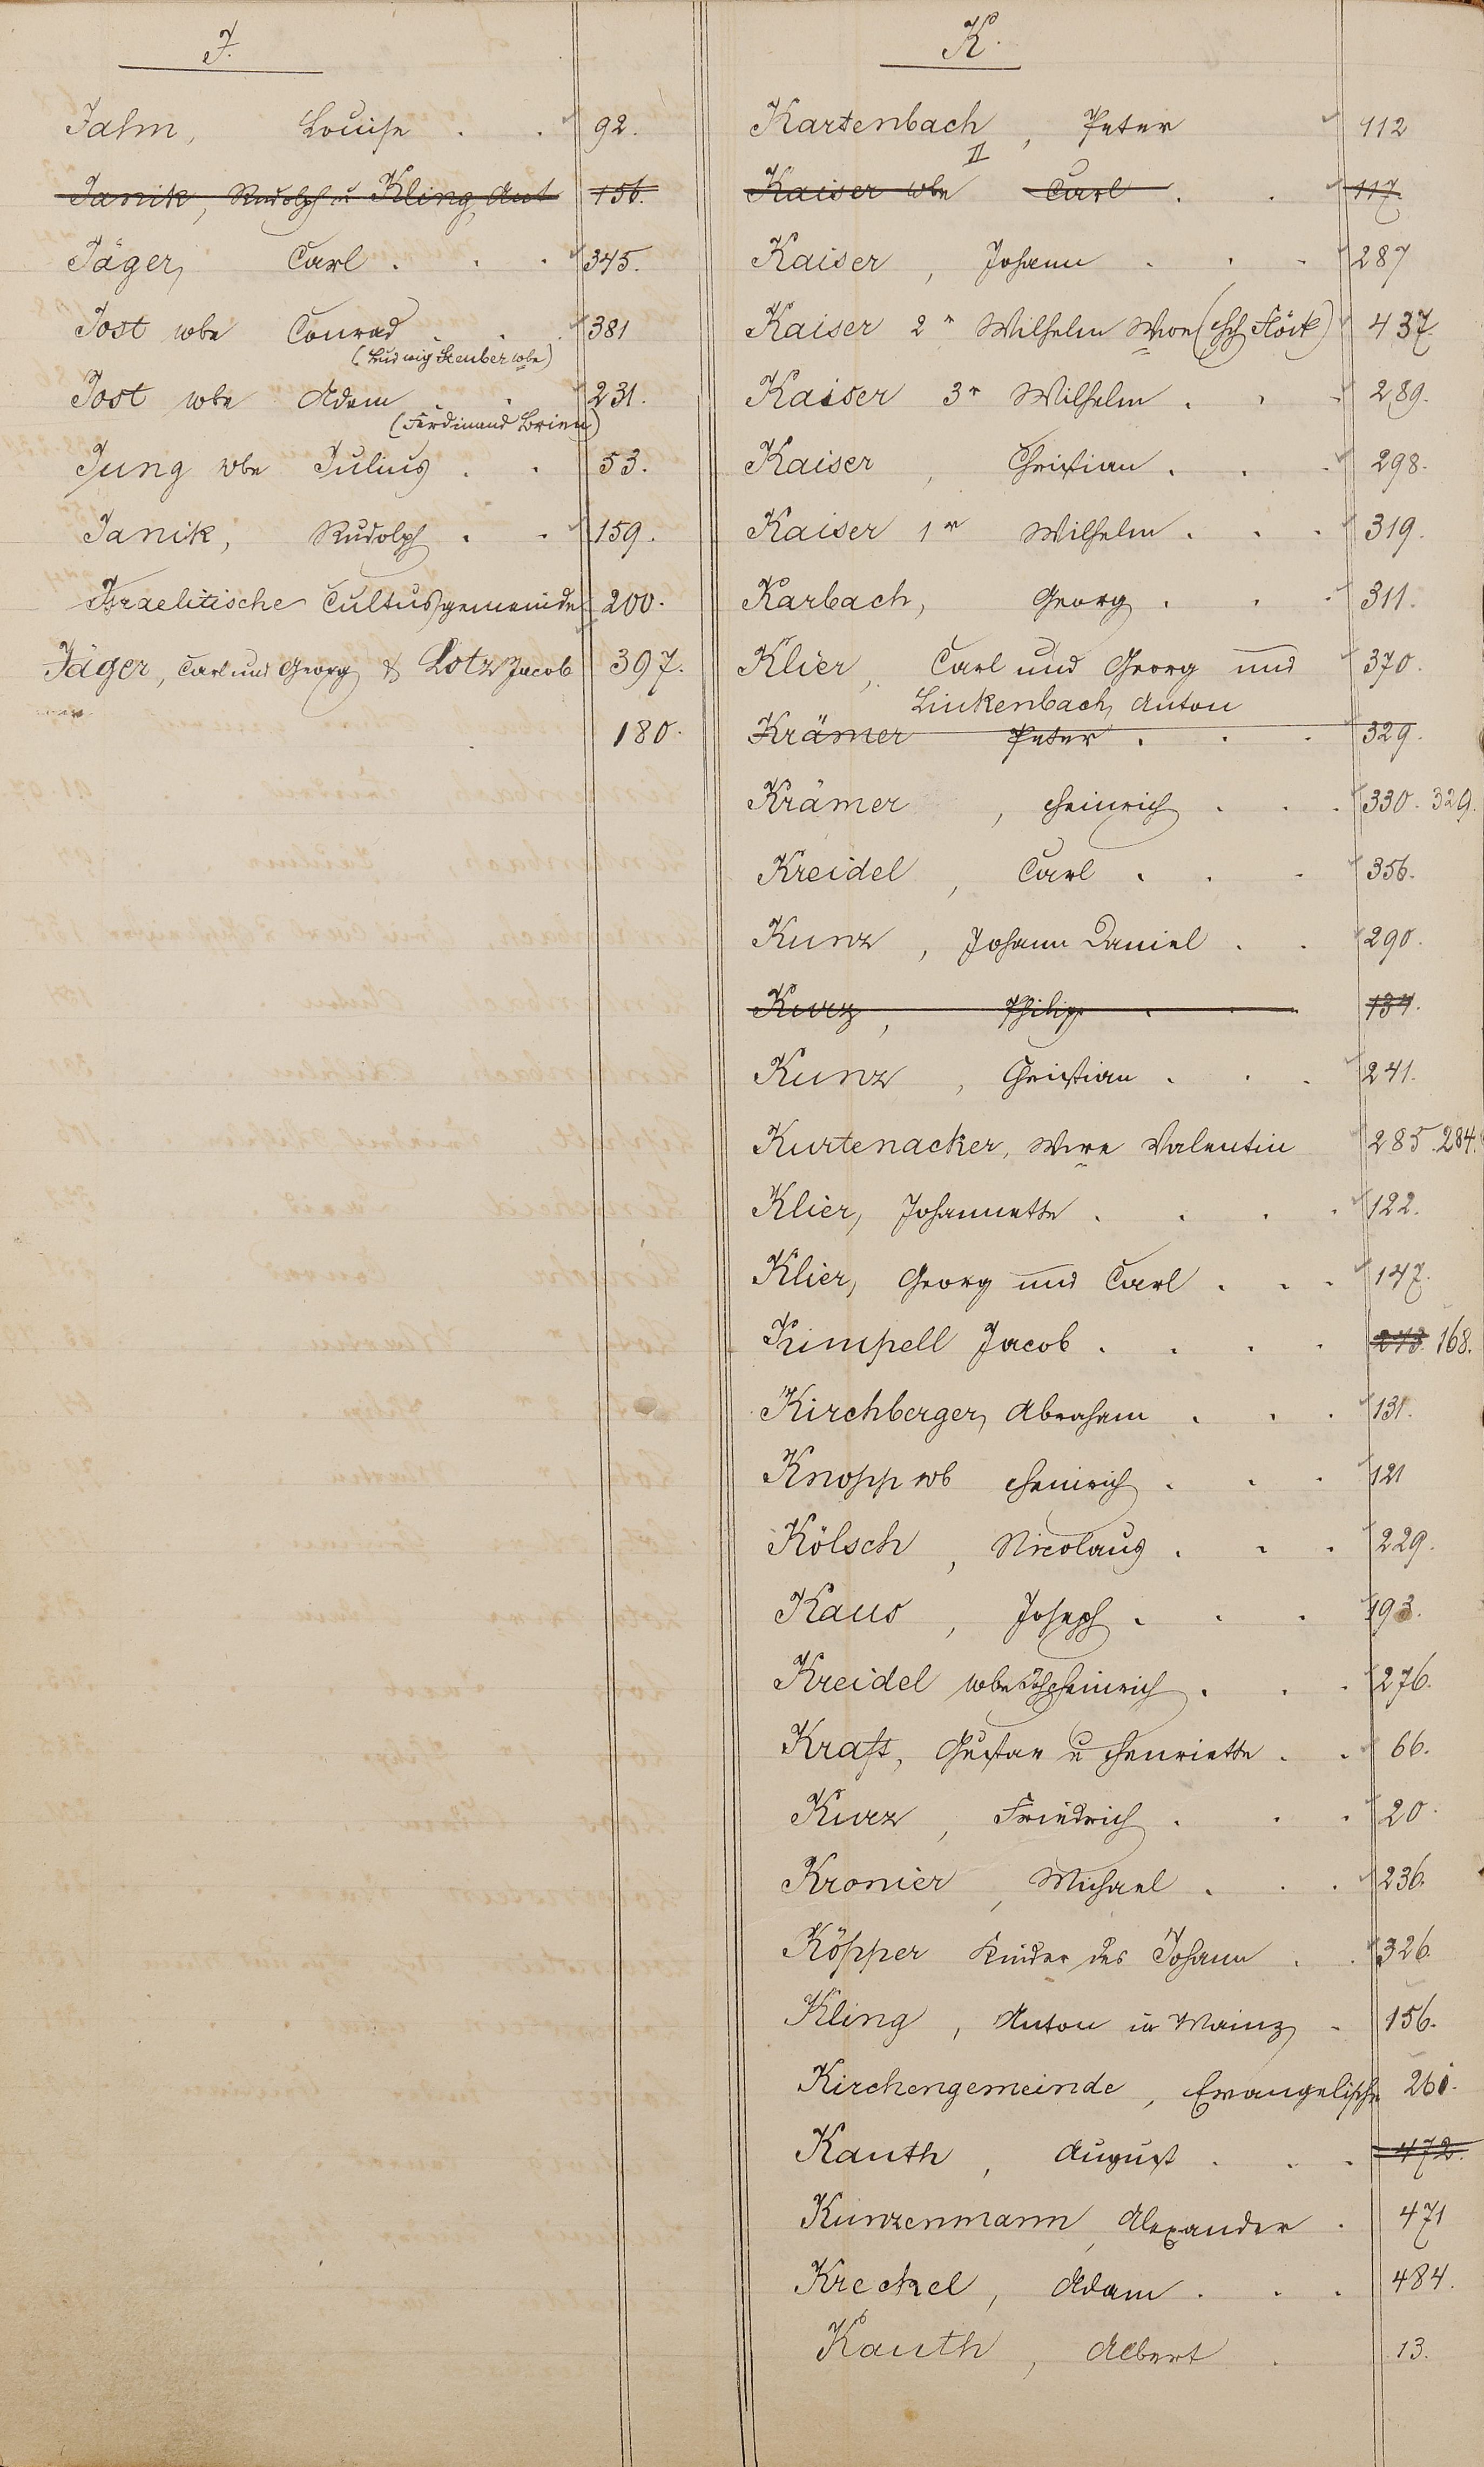 J.
Jahm, Louise . . 92.
Janik, Rudolph u Kling, Ant 156.
Jäger, Carl . . . 345.
Jost wbe Conrad . . 381
(Ludwig Steuber wbe)
Jost wbe Adam . . 231.
(Ferdinand Lorien)
Jung wbe Julius . . 53.
Janik, Rudolph . . 159.
Israelitische Cultusgemeinde 200.
Jäger, Carl und Georg & Lotz Jacob 397.
180.
K.
Kartenbach, Peter 112
II
Kaiser wbe Carl . . 117.
Kaiser, Johann . . . 287
Kaiser 2r Wilhelm Wwe 437.
Kaiser 3r Wilhelm . . . 289.
Kaiser, Christian . . . 298.
Kaiser 1r Wilhelm . . . 319.
Karbach, Georg . . . 311.
Klier, Carl und Georg und 370.
Linkenbach, Anton
Krämer Peter . . . 329.
Krämer, Heinrich . . . 330. 329.
Kreidel, Carl . . . 356.
Kunz, Johann Daniel . . 290.
Kurz, Philipp . . 134.
Kunz, Christian . . . 241.
Kurtenacker, Wwe Valentin 285. 284.
Klier, Johannette . . . . 122.
Klier, Georg und Carl . . . 147.
Kimpell Jacob . . . . 168.
Kirchberger, Abraham . . . 131.
Knopp wb Heinrich . . . 121
Kölsch, Nicolaus . . . 229.
Kaus, Joseph . . . 193.
Kreidel wbe Heinrich . . . 276.
Kraft, Gustav u Henriette . . 66.
Kurz, Friedrich . . . 20.
Kronier, Michael . . . 236.
Köpper Kinder des Johann . . 326.
Kling, Anton in Mainz . 156.
Kirchengemeinde, Evangelische 261.
Kauth, August . . . 472.
Kunzenmann, Alexander . 471
Kreckel, Adam . . . 484.
Kauth, Albert . 13.